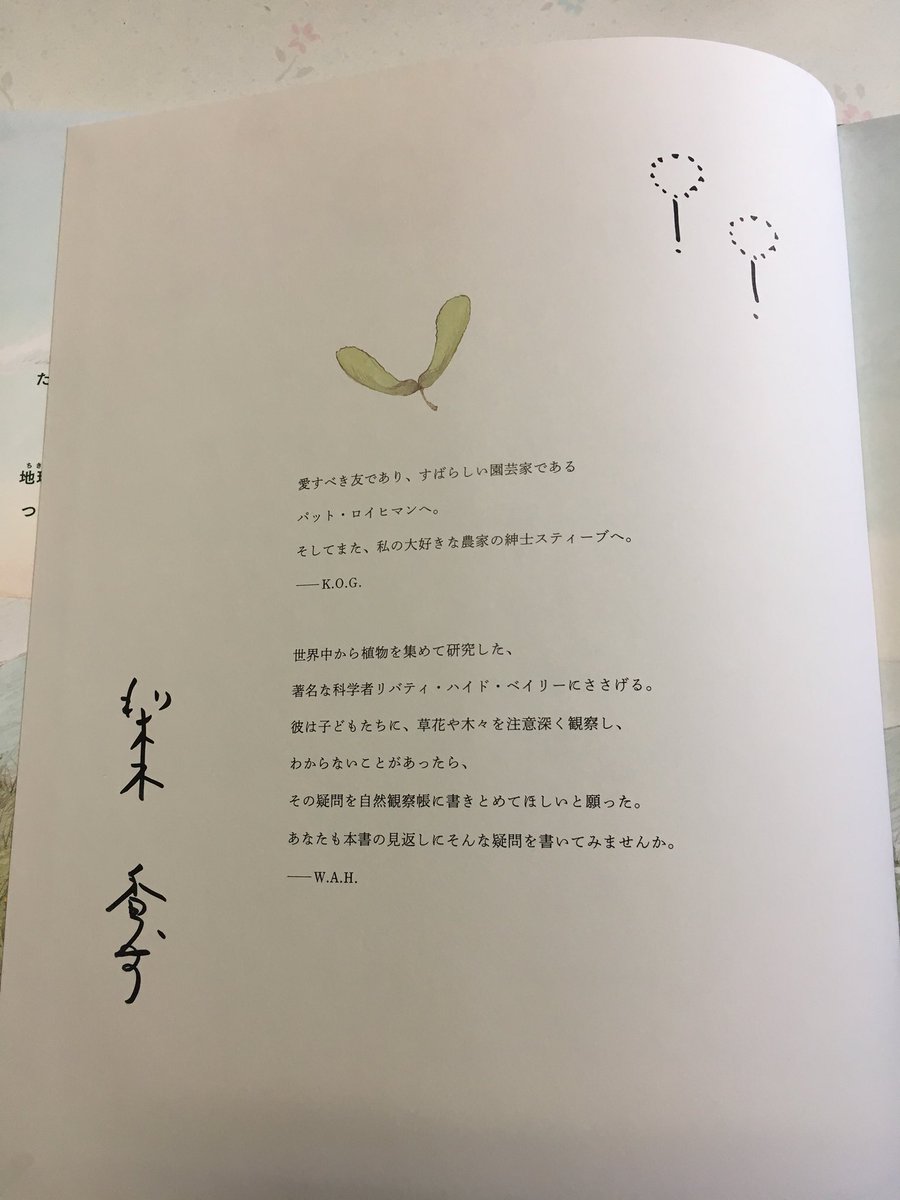 愛すべき友であり、すばらしい園芸家である
パット・ロイヒマンへ。
そしてまた、私の大好きな農家の紳士スティーブへ。
——K.O.G.
世界中から植物を集めて研究した、
著名な科学者リバティ・ハイド・ベイリーにささげる。
彼は子どもたちに、草花や木々を注意深く観察し、
わからないことがあったら、
その疑問を自然観察帳に書きとめてほしいと願った。
あなたも本書の見返しにそんな疑問を書いてみませんか。
——W.A.H.
梨木
香歩
た
ちき
地球
つ